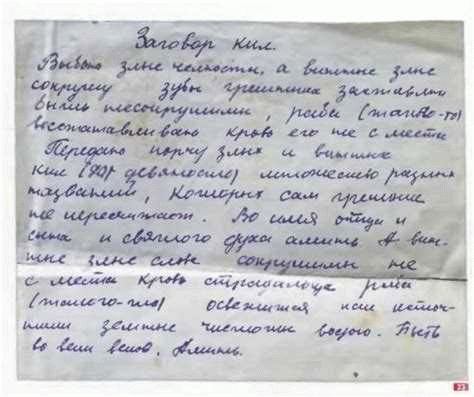 Заговор кил.
Выбью злые челюсти, а вижные злые
сокрушу зубы грешника заставлю
быть несокрушими, раба (такого-то)
восстанавливаю кровь его не с места
Передаю порчу злых и вижных
кил (девяносто) множество разных
названий, которых сам грешные
не пересчитают. Во имя отца и
сына и святого духа аминь. А виж-
ные злые слове сокрушимы не
с места кровь страдальца раба
(такого-то) освежится как источ-
ники земные чистою водою. Быть
во веки веков. Аминь.
23